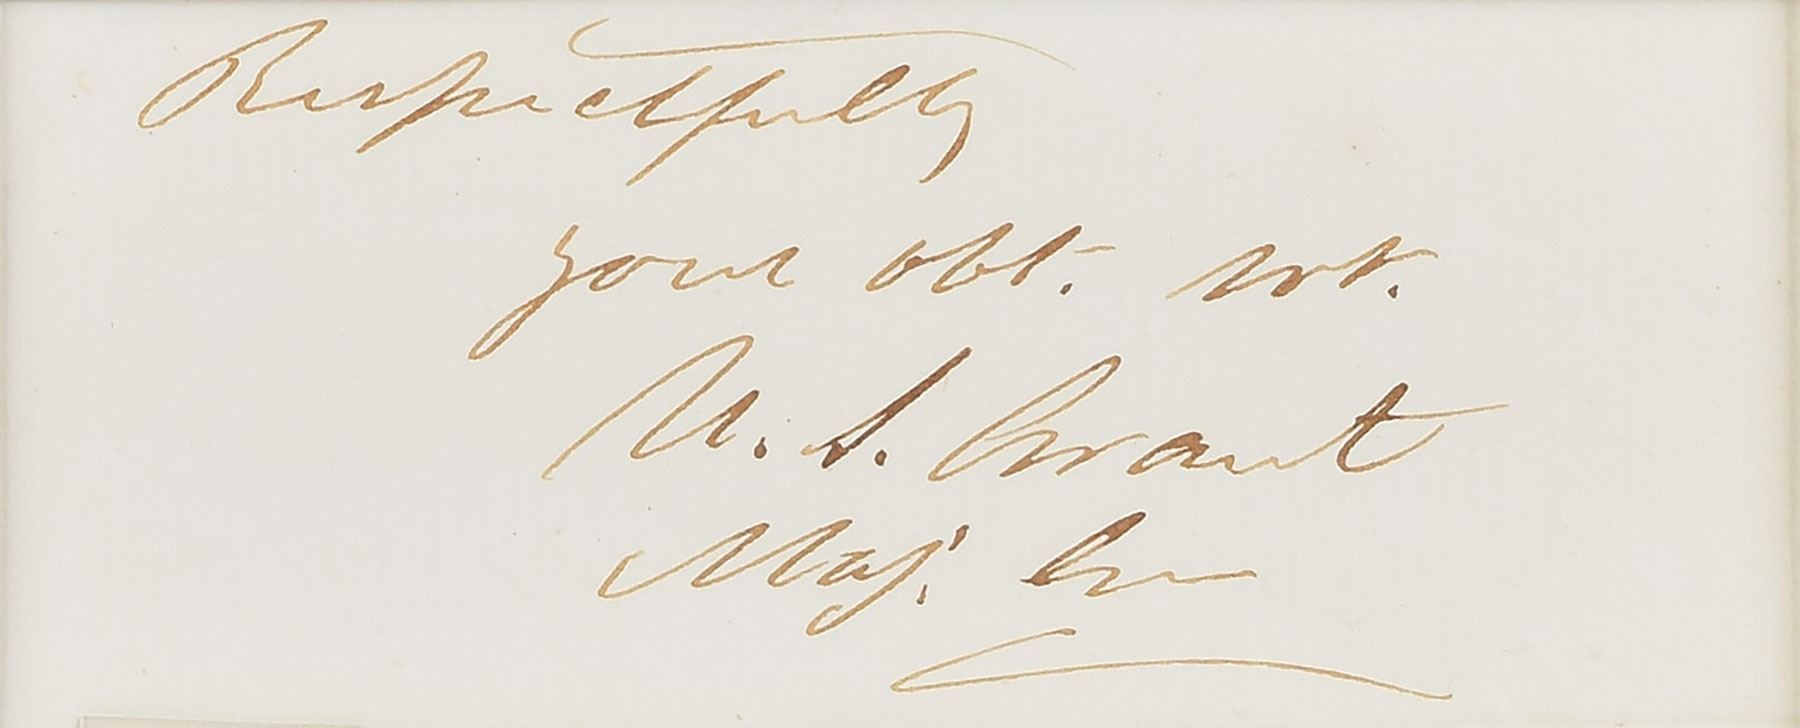 Respectfully
your obt. svt.
U. S. Grant
Maj. Gen